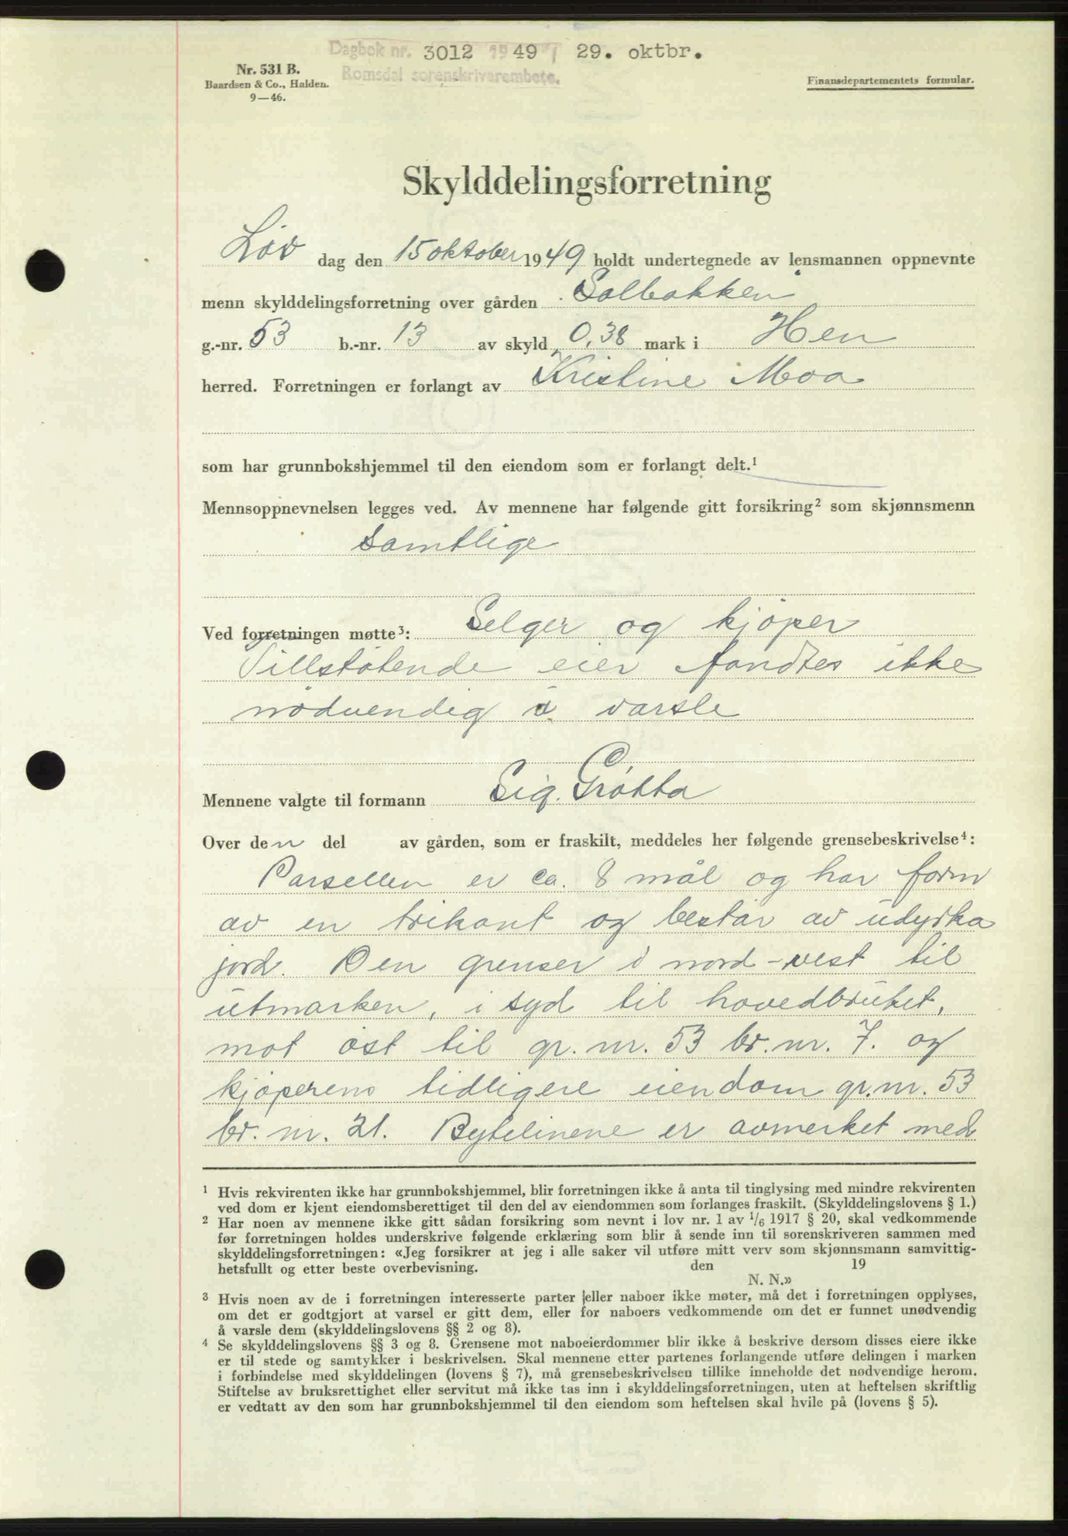 Dagbok nr. 3012 1949 29. oktbr.
Romsdal sorenskriverembete.
Nr. 531 B.
Baardsen & Co., Halden.
9—46.
Finansdepartementets formular.
Skylddelingsforretning
Löv dag den 15 oktober 1949 holdt undertegnede av lensmannen oppnevnte
menn skylddelingsforretning over gården Solbakken
g.-nr. 53 b.-nr. 13 av skyld 0,38 mark i Hen
herred. Forretningen er forlangt av Kristine Moa
som har grunnbokshjemmel til den eiendom som er forlangt delt.¹
Mennsoppnevnelsen legges ved. Av mennene har følgende gitt forsikring² som skjønnsmenn
Samtlige
Ved forretningen møtte³: Selger og kjöper
Tillstötende eier fandtes ikke
nödvendig å varsle
Mennene valgte til formann Sig. Grötta
Over den del av gården, som er fraskilt, meddeles her følgende grensebeskrivelse⁴:
Parsellen er ca. 8 mål og har form
av en trekant og består av udyrka
jord. Den grenser i nord-vest til
utmarken, i syd til hovedbruket,
mot öst til gr. nr. 53 br. nr. 7. og
kjöperens tidligere eiendom gr. nr. 53
br. nr. 21. Bytelinene er avmerket med
¹ Hvis rekvirenten ikke har grunnbokshjemmel, blir forretningen ikke å anta til tinglysing med mindre rekvirenten
ved dom er kjent eiendomsberettiget til den del av eiendommen som forlanges fraskilt. (Skylddelingslovens § 1.)
² Har noen av mennene ikke gitt sådan forsikring som nevnt i lov nr. 1 av 1/6 1917 § 20, skal vedkommende
før forretningen holdes underskrive følgende erklæring som blir å sende inn til sorenskriveren sammen med
skylddelingsforretningen: «Jeg forsikrer at jeg i alle saker vil utføre mitt verv som skjønnsmann samvittig-
hetsfullt og etter beste overbevisning. den 19
N. N.»
³ Hvis noen av de i forretningen interesserte parter eller naboer ikke møter, må det i forretningen opplyses,
om det er godtgjort at varsel er gitt dem, eller for naboers vedkommende om det er funnet unødvendig
å varsle dem (skylddelingslovens §§ 2 og 8).
⁴ Se skylddelingslovens §§ 3 og 8. Grensene mot naboeierdommer blir ikke å beskrive dersom disses eiere ikke
er til stede og samtykker i beskrivelsen. Skal mennene etter partenes forlangende utføre delingen i marken
i forbindelse med skylddelingen (lovens § 7), må grensebeskrivelsen tillike inneholde det nødvendige herom.
Stiftelse av bruksrettighet eller servitut må ikke tas inn i skylddelingsforretningen, uten at heftelsen skriftlig
er vedtatt av den som har grunnbokshjemmel til den eiendom som heftelsen skal hvile på (lovens § 5).